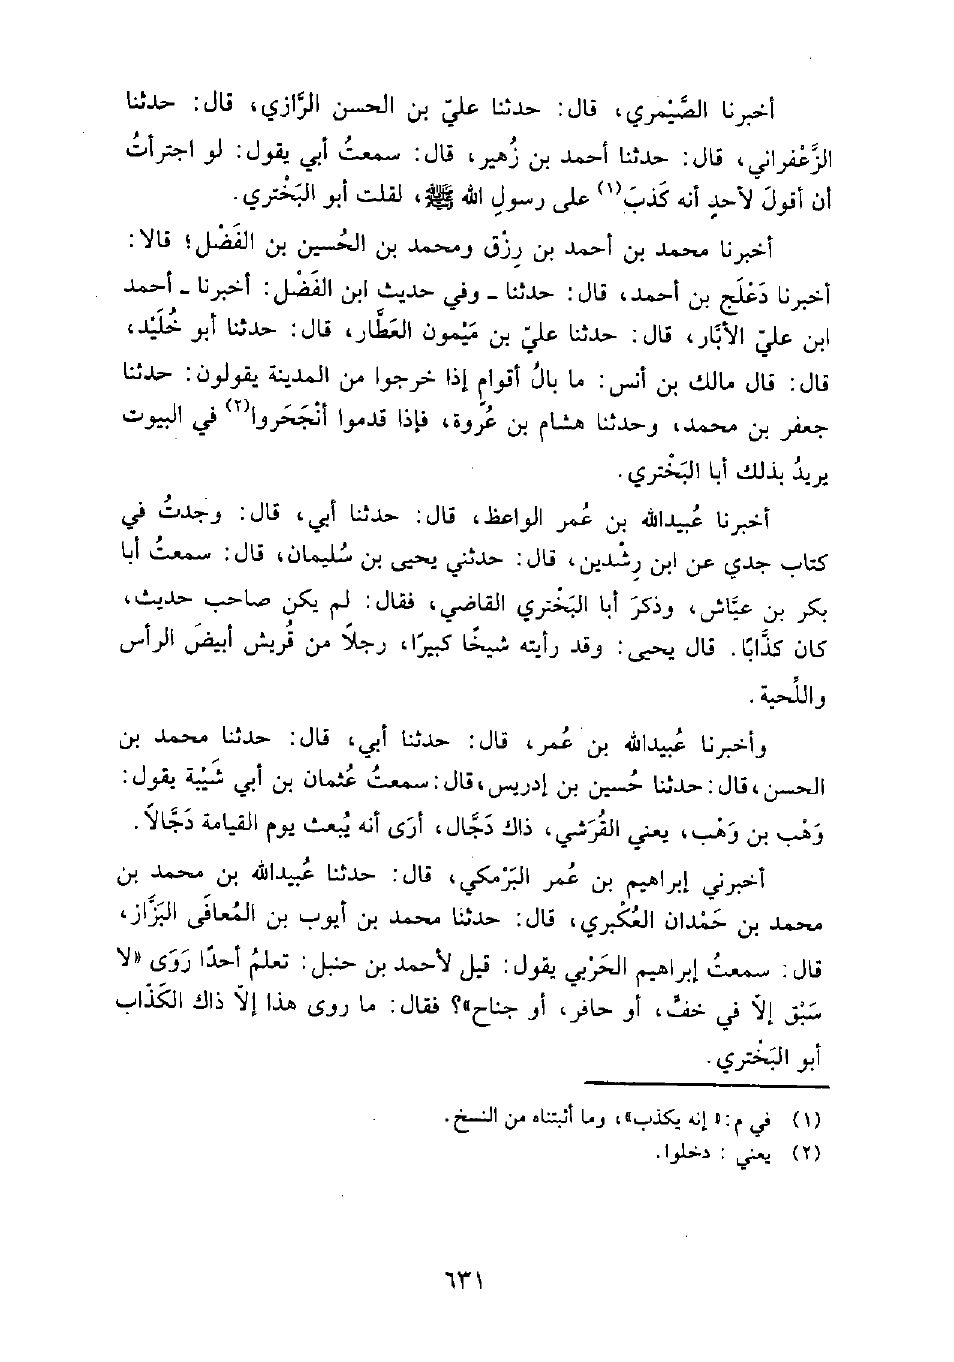 أخبرنا الصَّيْمري، قال: حدثنا عليّ بن الحسن الرَّازي، قال: حدثنا
الزَّعْفراني، قال: حدثنا أحمد بن زُهير، قال: سمعتُ أبي يقول: لو اجترأتُ
أن أقولَ لأحدٍ أنه كَذبَ(١) على رسولِ الله ﷺ، لقلت أبو البَخْتري.
أخبرنا محمد بن أحمد بن رِزْق ومحمد بن الحُسين بن الفَضْل؛ قالا:
أخبرنا دَعْلَج بن أحمد، قال: حدثنا ـ وفي حديث ابن الفَضْل: أخبرنا ـ أحمد
ابن عليّ الأبَّار، قال: حدثنا عليّ بن مَيْمون العَطَّار، قال: حدثنا أبو خُلَيْد،
قال: قال مالك بن أنس: ما بالُ أقوامٍ إذا خرجوا من المدينة يقولون: حدثنا
جعفر بن محمد، وحدثنا هشام بن عُروة، فإذا قدموا أنْجَحَروا(٢) في البيوت
يريدُ بذلك أبا البَخْتري.
أخبرنا عُبيدالله بن عُمر الواعظ، قال: حدثنا أبي، قال: وجدتُ في
كتاب جدي عن ابن رِشْدين، قال: حدثني يحيى بن سُليمان، قال: سمعتُ أبا
بكر بن عيَّاش، وذكرَ أبا البَخْتري القاضي، فقال: لم يكن صاحب حديث،
كان كذَّابًا. قال يحيى: وقد رأيته شيخًا كبيرًا، رجلاً من قُريش أبيضَ الرأس
واللِّحية.
وأخبرنا عُبيدالله بن عُمر، قال: حدثنا أبي، قال: حدثنا محمد بن
الحسن، قال: حدثنا حُسين بن إدريس، قال: سمعتُ عُثمان بن أبي شَيْبة يقول:
وَهْب بن وَهْب، يعني القُرَشي، ذاك دَجَّال، أرَى أنه يُبعث يوم القيامة دَجَّالاً.
أخبرني إبراهيم بن عُمر البَرْمكي، قال: حدثنا عُبيدالله بن محمد بن
محمد بن حَمْدان العُكْبري، قال: حدثنا محمد بن أيوب بن المُعافَى البَزَّاز،
قال: سمعتُ إبراهيم الحَرْبي يقول: قيل لأحمد بن حنبل: تعلمُ أحدًا رَوَى «لا
سَبْق إلاّ في خفٍّ، أو حافر، أو جناح»؟ فقال: ما روى هذا إلاّ ذاك الكَذّاب
أبو البَخْتري.
(١) في م: «إنه يكذب»، وما أثبتناه من النسخ.
(٢) يعني: دخلوا.
٦٣١